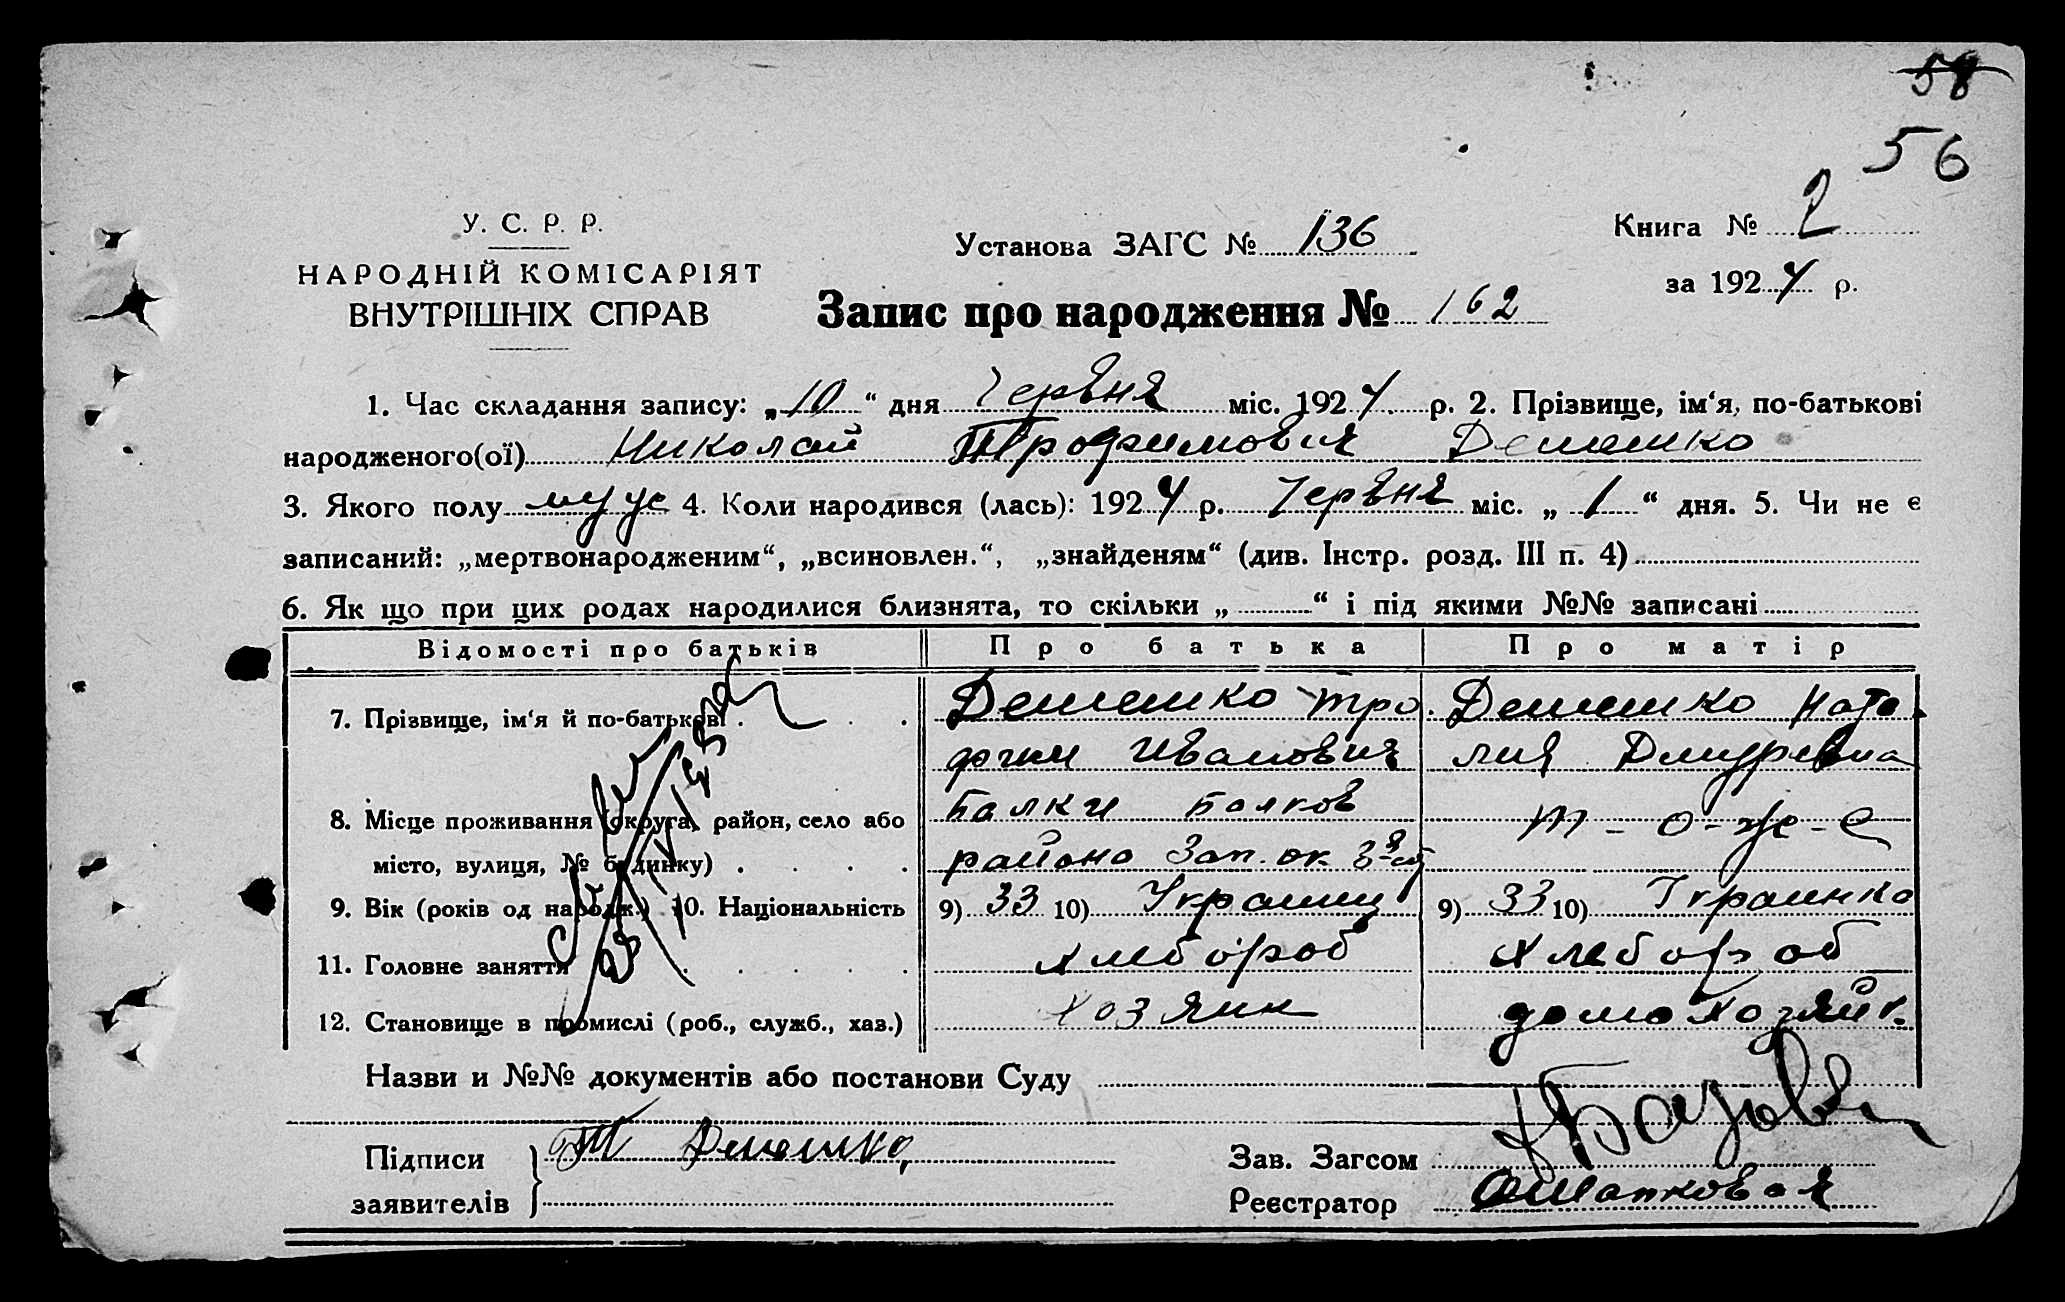 58
56
У. С. Р. Р.
НАРОДНІЙ КОМІСАРІЯТ
ВНУТРІШНІХ СПРАВ
Установа ЗАГС № 136
Книга № 2
за 1924 р.
Запис про народження № 162
1. Час складання запису: „10“ дня Червня міс. 1924 р. 2. Прізвище, ім'я, по-батькові
народженого(ої) Николай Трофимович Демешко
3. Якого полу муж 4. Коли народився (лась): 1924 р. Червня міс. „1“ дня. 5. Чи не є
записаний: „мертвонародженим“, „всиновлен.“, „знайденям“ (див. Інстр. розд. III п. 4)
6. Як що при цих родах народилися близнята, то скільки „ “ і під якими №№ записані
Відомості про батьків Про батька Про матір
7. Прізвище, ім'я й по-батькові Демешко Тро. Демешко Ната.
фим Иванович лия
8. Місце проживання (округа, район, село або Балки Балков т-о-же-е
місто, вулиця, № будинку) района Зап. ок.
9. Вік (років од народж.) 10. Національність 9) 33 10) Украинц 9) 33 10) Украинка
11. Головне заняття хлебороб хлебороб
12. Становище в промислі (роб., служб., хаз.) хозяин домохозяйк.
Назви и №№ документів або постанови Суду
Підписи Т Демешко
заявителів
Зав. Загсом
Реєстратор